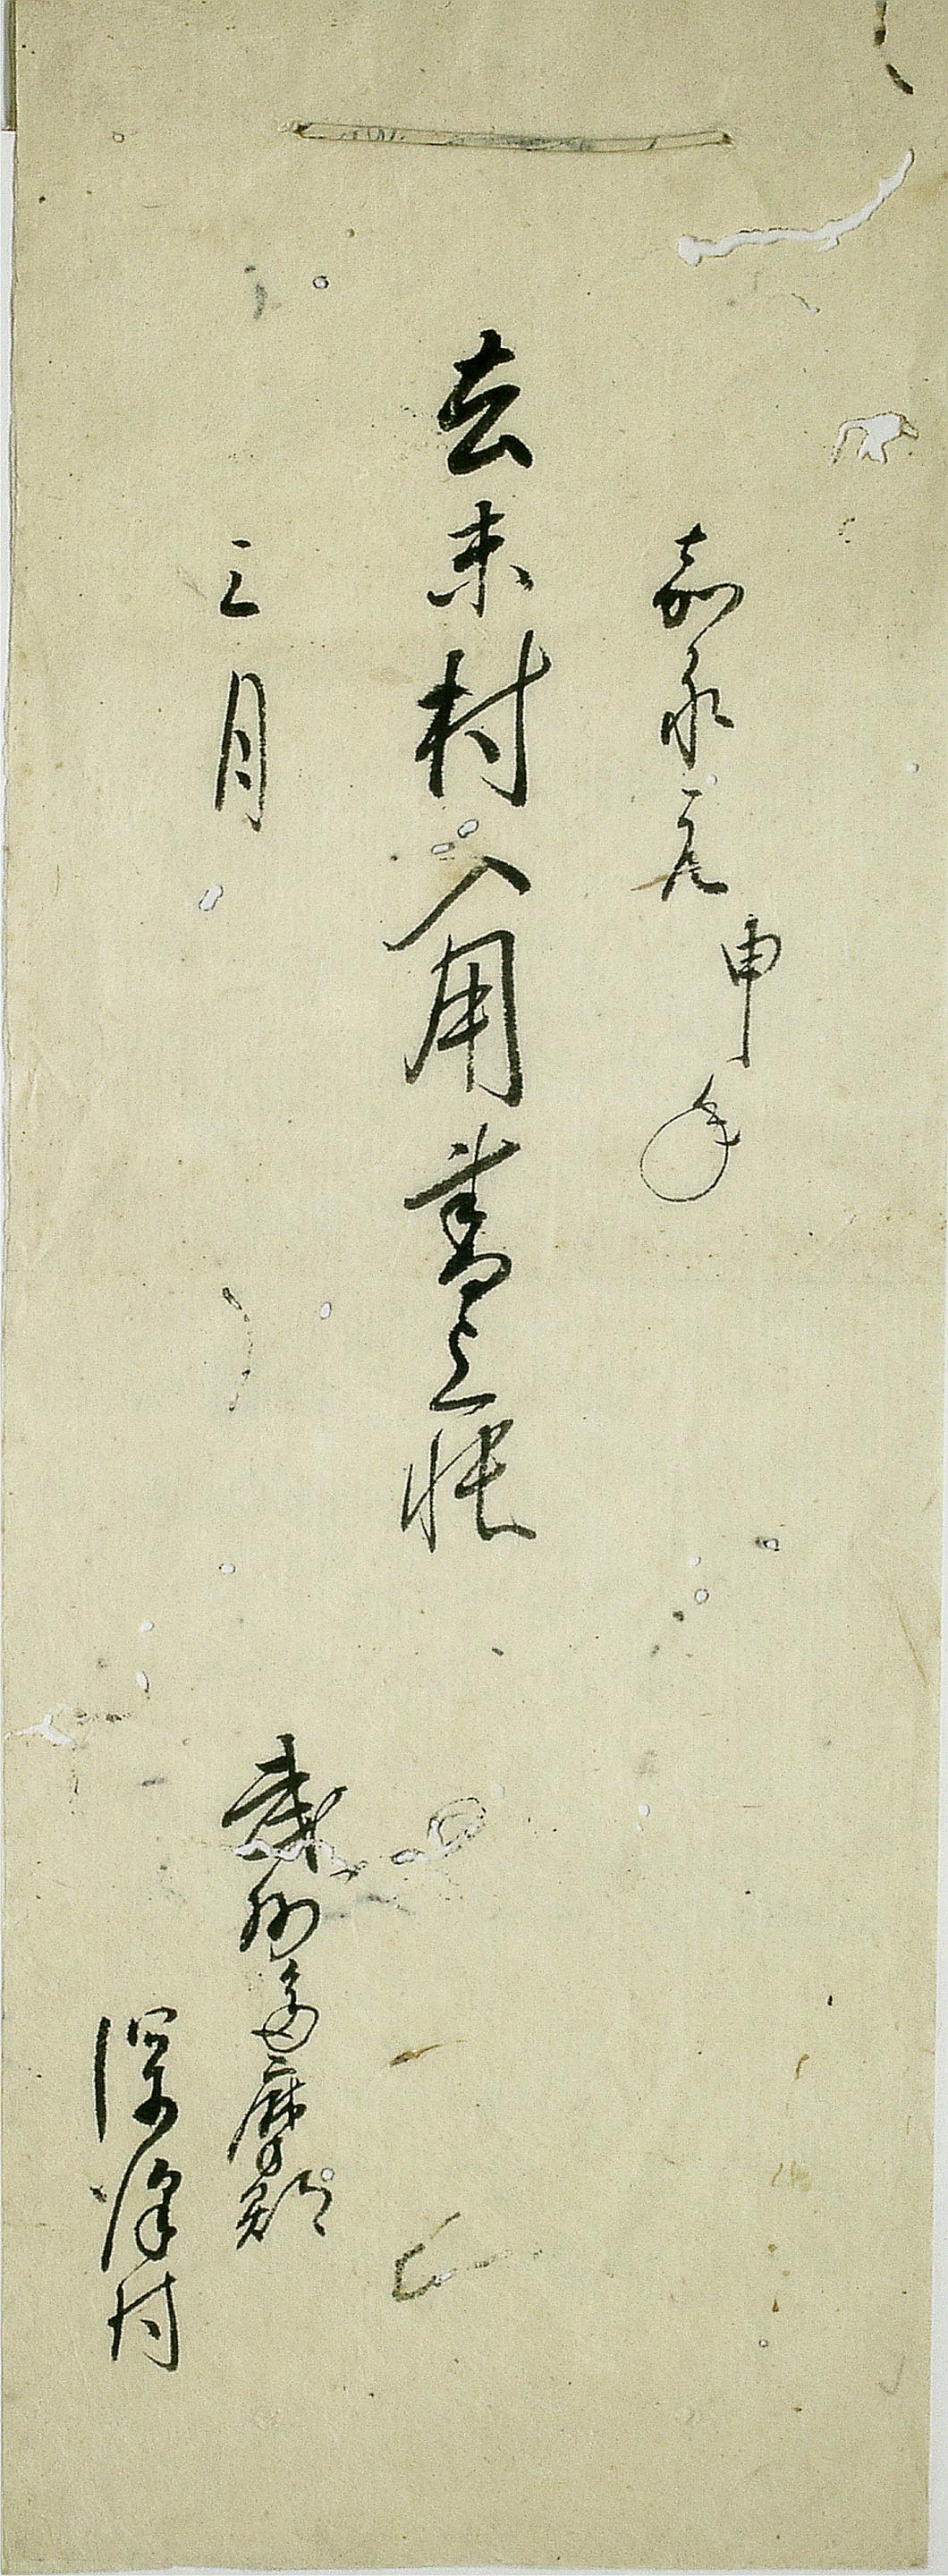 嘉永元申年
去未村入用書上帳
三月
武州多摩郡
深澤村